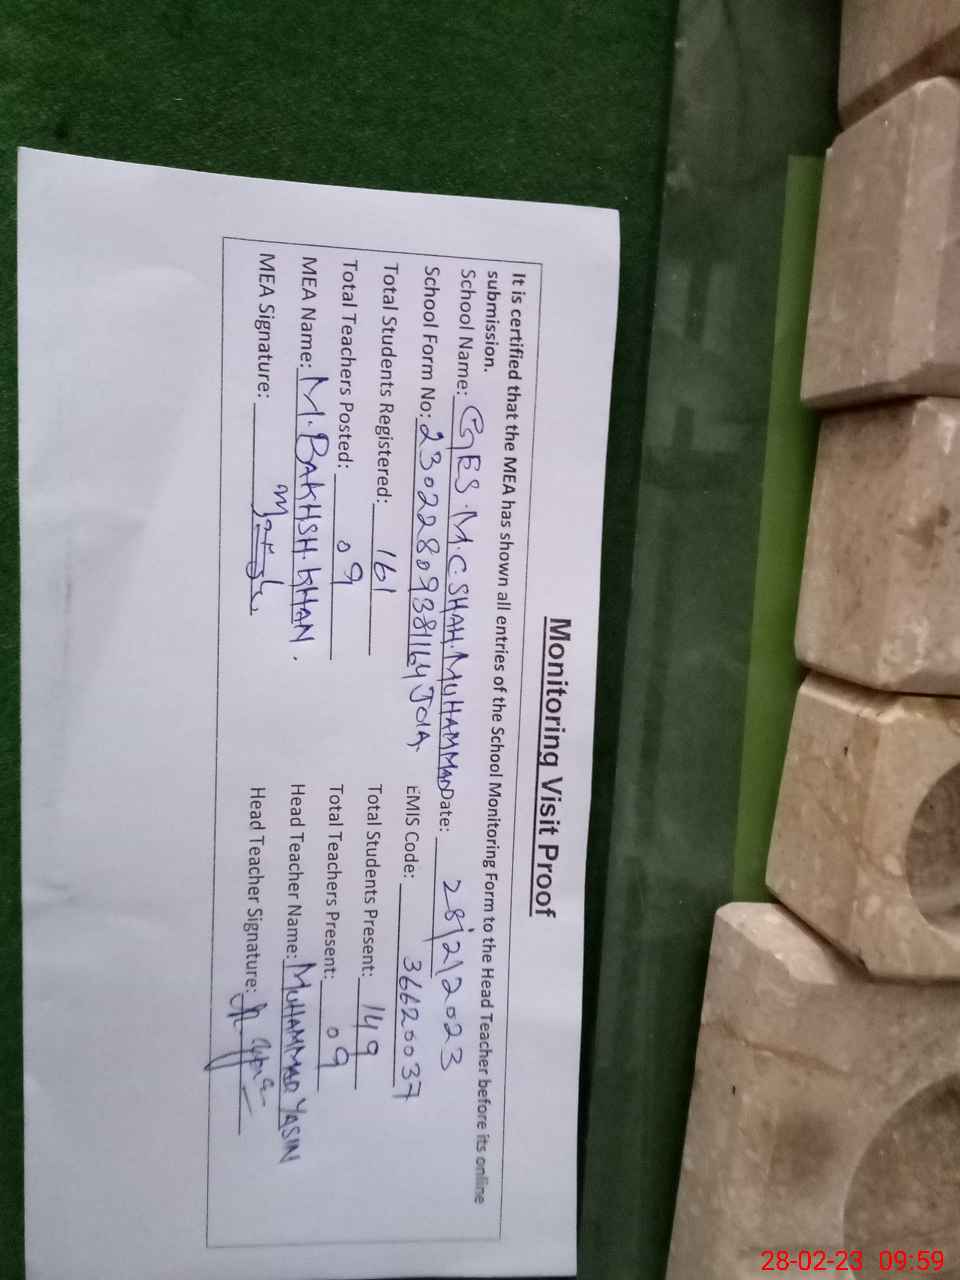 Monitoring Visit Proof
It is certified that the MEA has shown all entries of the School Monitoring Form to the Head Teacher before its online
submission.
School Name: GES. M.C. SHAH. MUHAMMAD Date: 28/2/2023
School Form No: 23022809381164 JOIA. EMIS Code: 36620037
Total Students Registered: 161 Total Students Present: 149
Total Teachers Posted: 09 Total Teachers Present: 09
MEA Name: M. BAKHSH. KHAN. Head Teacher Name: MUHAMMAD YASIN
MEA Signature: Head Teacher Signature:
28-02-23 09:59